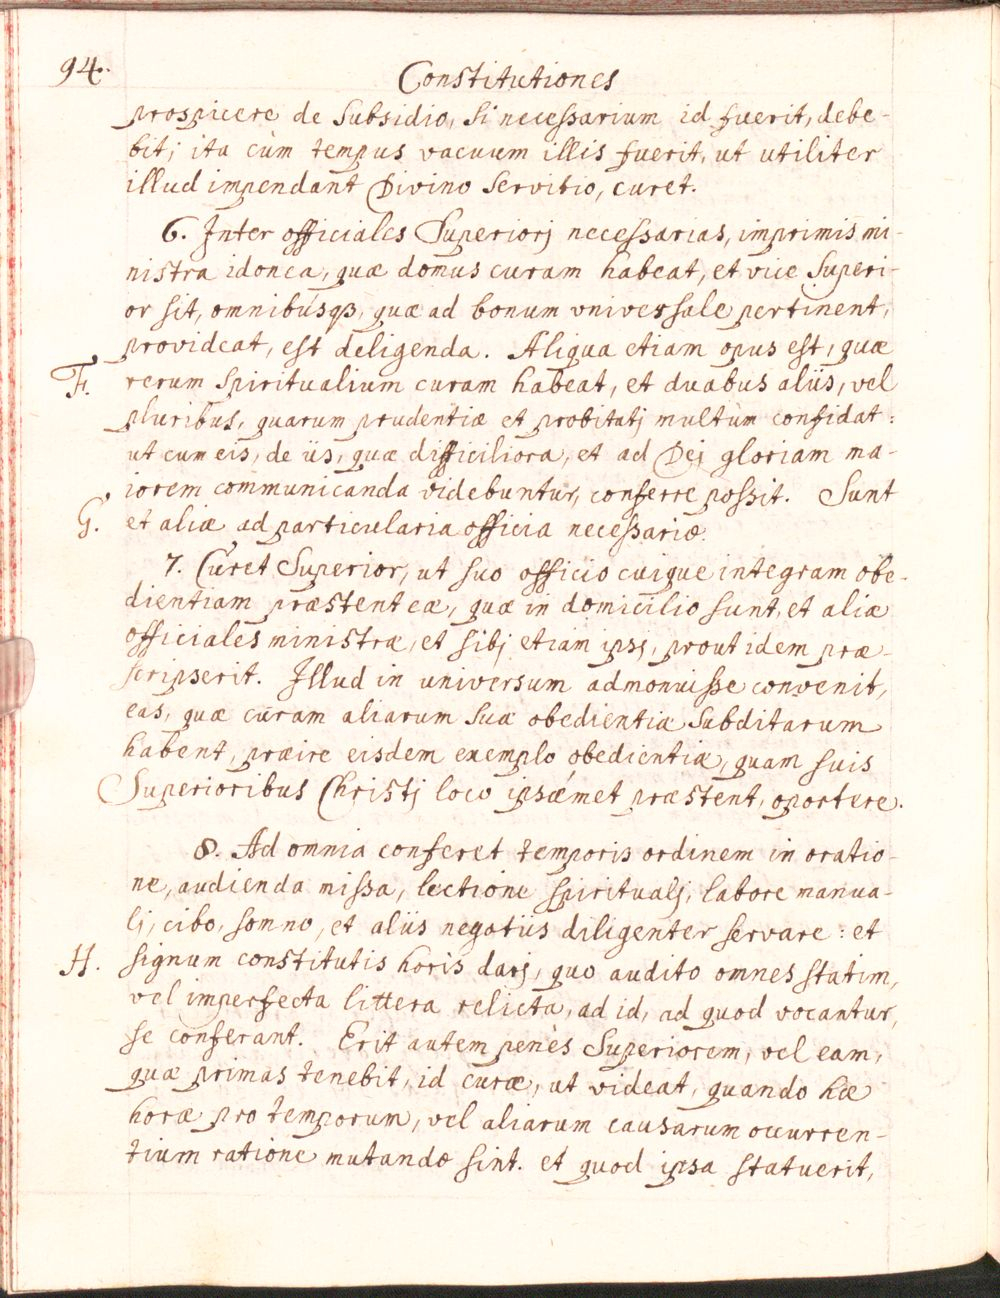 94.
Constitutiones
prospicere de Subsidio, si necessarium id fuerit, debe-
bit; ita cùm tempus vacuum illis fuerit, ut utiliter
illud impendant Divino servitio, curet.
6. Inter officiales Superiorj necessarias, imprimis mi-
nistra idonea, quæ domus curam habeat, et vice Superi-
or sit, omnibúsqȝ, quæ ad bonum vniversale pertinent,
provideat, est deligenda. Aliqua etiam opus est, quæ
F. rerum spiritualium curam habeat, et duabus aliis, vel
pluribus, quarum prudentiæ et probitatj multùm confidat:
ut cum eis, de iis, quæ difficiliora, et ad Dej gloriam ma-
iorem communicanda videbuntur, conferre possit. Sunt
G. et aliæ ad particularia officia necessariæ.
7. Curet Superior, ut suo officio cuique integram obe-
dientiam præstent eæ, quæ in domicilio sunt, et aliæ
officiales ministræ, et sibj etiam ipsj, prout idem præ-
scripserit. Illud in universum admonuisse convenit,
eas, quæ curam aliarum suæ obedientiæ Subditarum
habent, præire eisdem exemplo obedientiæ, quam suis
Superioribus Christj loco ipsæmet præstent, oportere.
8. Ad omnia conferet temporis ordinem in oratio-
ne, audienda missa, lectione spiritualj, labore manua-
lj, cibo, somno, et aliis negotiis diligenter servare: et
H. signum constitutis horis darj, quo audito omnes statim,
vel imperfecta littera relicta, ad id, ad quod vocantur,
se conferant. Erit autem penès Superiorem, vel eam,
quæ primas tenebit, id curæ, ut videat, quando hæ
horæ pro temporum, vel aliarum causarum occurren-
tium ratione mutandæ sint. et quod ipsa statuerit,